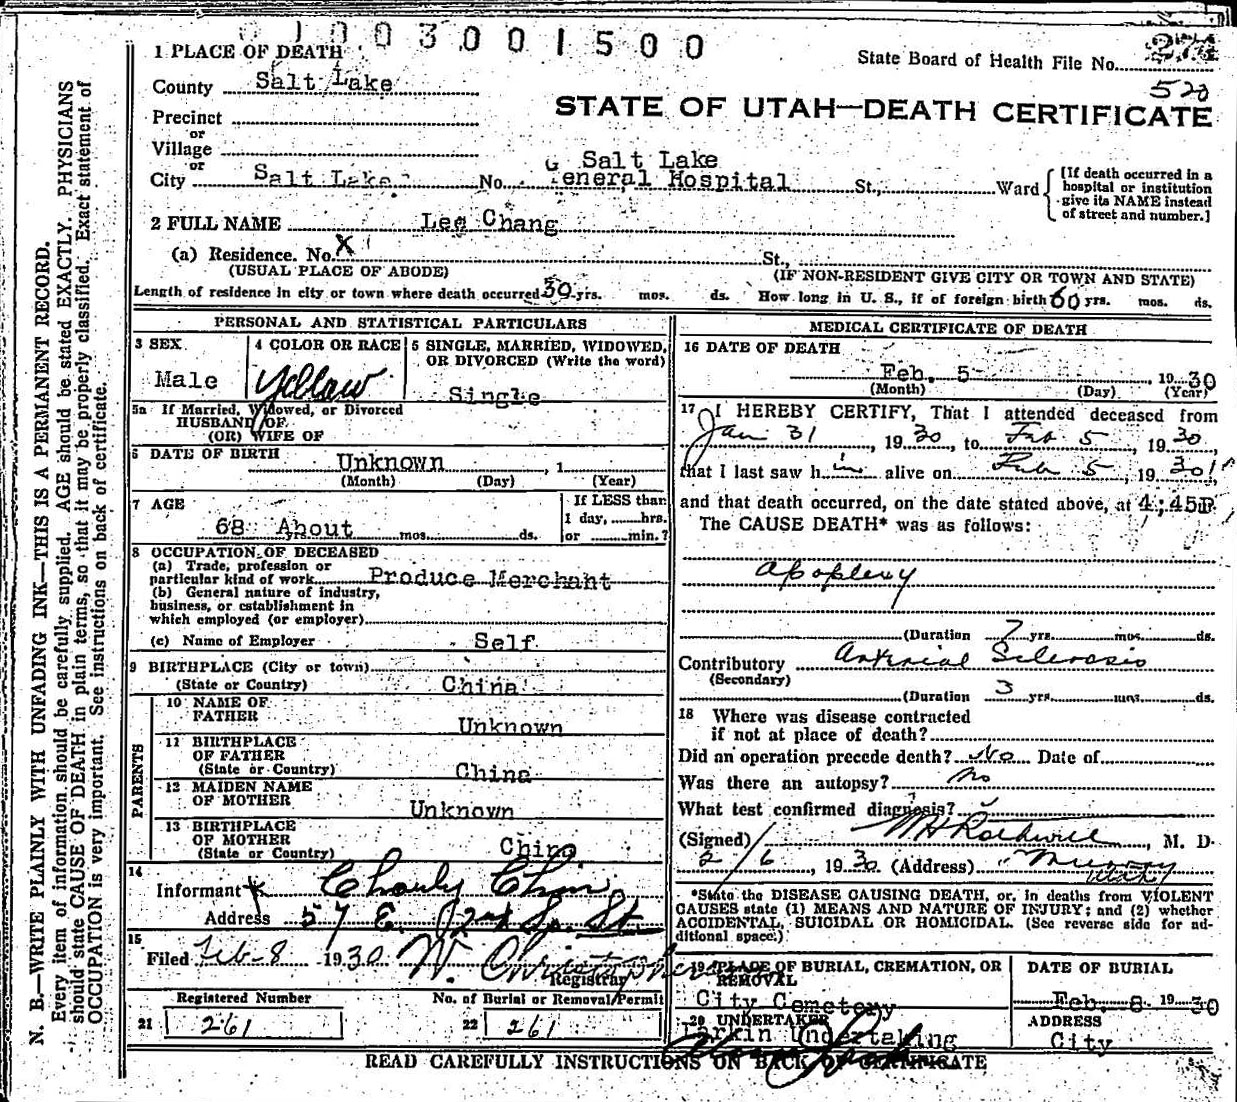 1003001500
1 PLACE OF DEATH
State Board of Health File No.
520
County Salt Lake
STATE OF UTAH—DEATH CERTIFICATE
Precinct
or
Village
or
City Salt Lake No. Salt Lake General Hospital St., Ward
[If death occurred in a
hospital or institution
give its NAME instead
of street and number.]
2 FULL NAME Lee Chang
(a) Residence. No. X St.,
(USUAL PLACE OF ABODE) (IF NON-RESIDENT GIVE CITY OR TOWN AND STATE)
Length of residence in city or town where death occurred 30 yrs. mos. ds. How long in U. S., if of foreign birth 60 yrs. mos. ds.
PERSONAL AND STATISTICAL PARTICULARS
3 SEX
Male
4 COLOR OR RACE
Yellow
5 SINGLE, MARRIED, WIDOWED,
OR DIVORCED (Write the word)
Single
5a If Married, Widowed, or Divorced
HUSBAND OF
(OR) WIFE OF
6 DATE OF BIRTH
Unknown , 1
(Month) (Day) (Year)
7 AGE
68 About yrs. mos. ds.
If LESS than
1 day, hrs.
or min.?
8 OCCUPATION OF DECEASED
(a) Trade, profession or
particular kind of work Produce Merchant
(b) General nature of industry,
business, or establishment in
which employed (or employer)
(c) Name of Employer Self
9 BIRTHPLACE (City or town)
(State or Country) China
PARENTS
10 NAME OF
FATHER Unknown
11 BIRTHPLACE
OF FATHER
(State or Country) China
12 MAIDEN NAME
OF MOTHER Unknown
13 BIRTHPLACE
OF MOTHER
(State or Country) China
14
Informant Charly Chin
Address 57 E. 2nd So. St
15
Filed Feb-8 1930 W. Christopherson
Registrar
Registered Number
21 261
No. of Burial or Removal/Permit
22 261
MEDICAL CERTIFICATE OF DEATH
16 DATE OF DEATH
Feb. 5 1930
(Month) (Day) (Year)
17 I HEREBY CERTIFY, That I attended deceased from
Jan 31, 1930, to Feb 5, 1930,
that I last saw him alive on Feb 5, 1930,
and that death occurred, on the date stated above, at 4:45P.
The CAUSE DEATH* was as follows:
apoplexy
(Duration 7 yrs. mos. ds.
Contributory Arterial Sclerosis
(Secondary)
(Duration 3 yrs. mos. ds.
18 Where was disease contracted
if not at place of death?
Did an operation precede death? No Date of
Was there an autopsy? no
What test confirmed diagnosis?
(Signed) M H Rothwell, M. D.
2/6, 1930 (Address) Murray
Utah
*State the DISEASE CAUSING DEATH, or, in deaths from VIOLENT
CAUSES state (1) MEANS AND NATURE OF INJURY; and (2) whether
ACCIDENTAL, SUICIDAL OR HOMICIDAL. (See reverse side for ad-
ditional space.)
19 PLACE OF BURIAL, CREMATION, OR
REMOVAL
City Cemetery
DATE OF BURIAL
Feb. 8 1930
20 UNDERTAKER
Larkin Undertaking
ADDRESS
City
READ CAREFULLY INSTRUCTIONS ON BACK OF CERTIFICATE
N. B.—WRITE PLAINLY WITH UNFADING INK—THIS IS A PERMANENT RECORD.
Every item of information should be carefully supplied. AGE should be stated EXACTLY. PHYSICIANS
should state CAUSE OF DEATH in plain terms, so that it may be properly classified. Exact statement of
OCCUPATION is very important. See instructions on back of certificate.